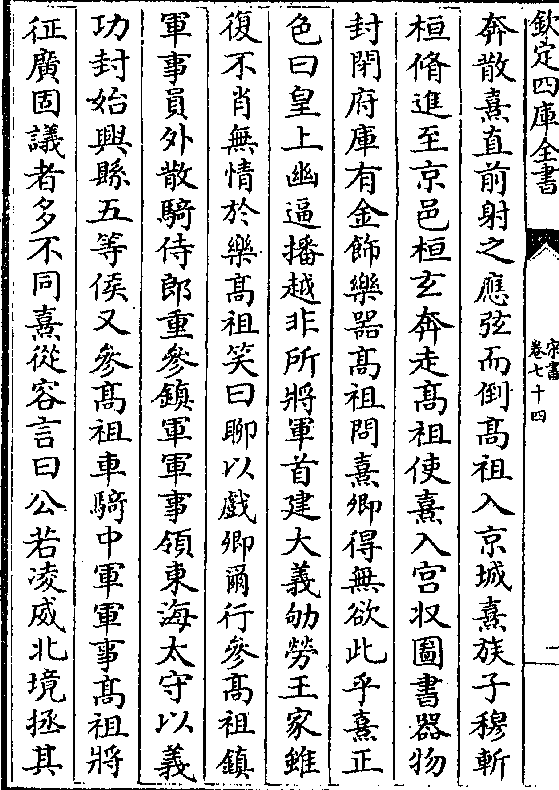 欽定四庫全書
宋書
卷七十四
一
奔散熹直前射之應弦而倒髙祖入京城熹族子穆斬
桓脩進至京邑桓玄奔走髙祖使熹入宮收圖書器物
封閉府庫有金飾樂器髙祖問熹卿得無欲此乎熹正
色曰皇上幽逼播越非所將軍首建大義劬勞王家雖
復不肖無情於樂髙祖笑曰聊以戲卿爾行參髙祖鎮
軍事員外散騎侍郎重參鎮軍軍事領東海太守以義
功封始興縣五等侯又參髙祖車騎中軍軍事髙祖將
征廣固議者多不同熹從容言曰公若凌威北境拯其